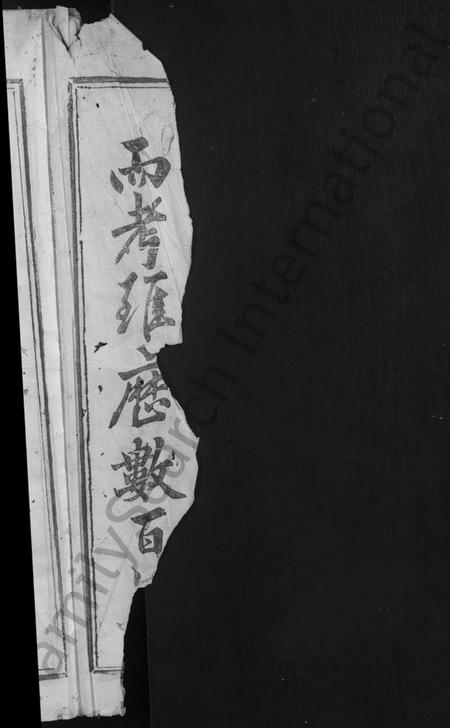 而考雖
歷數百
FamilySearch International